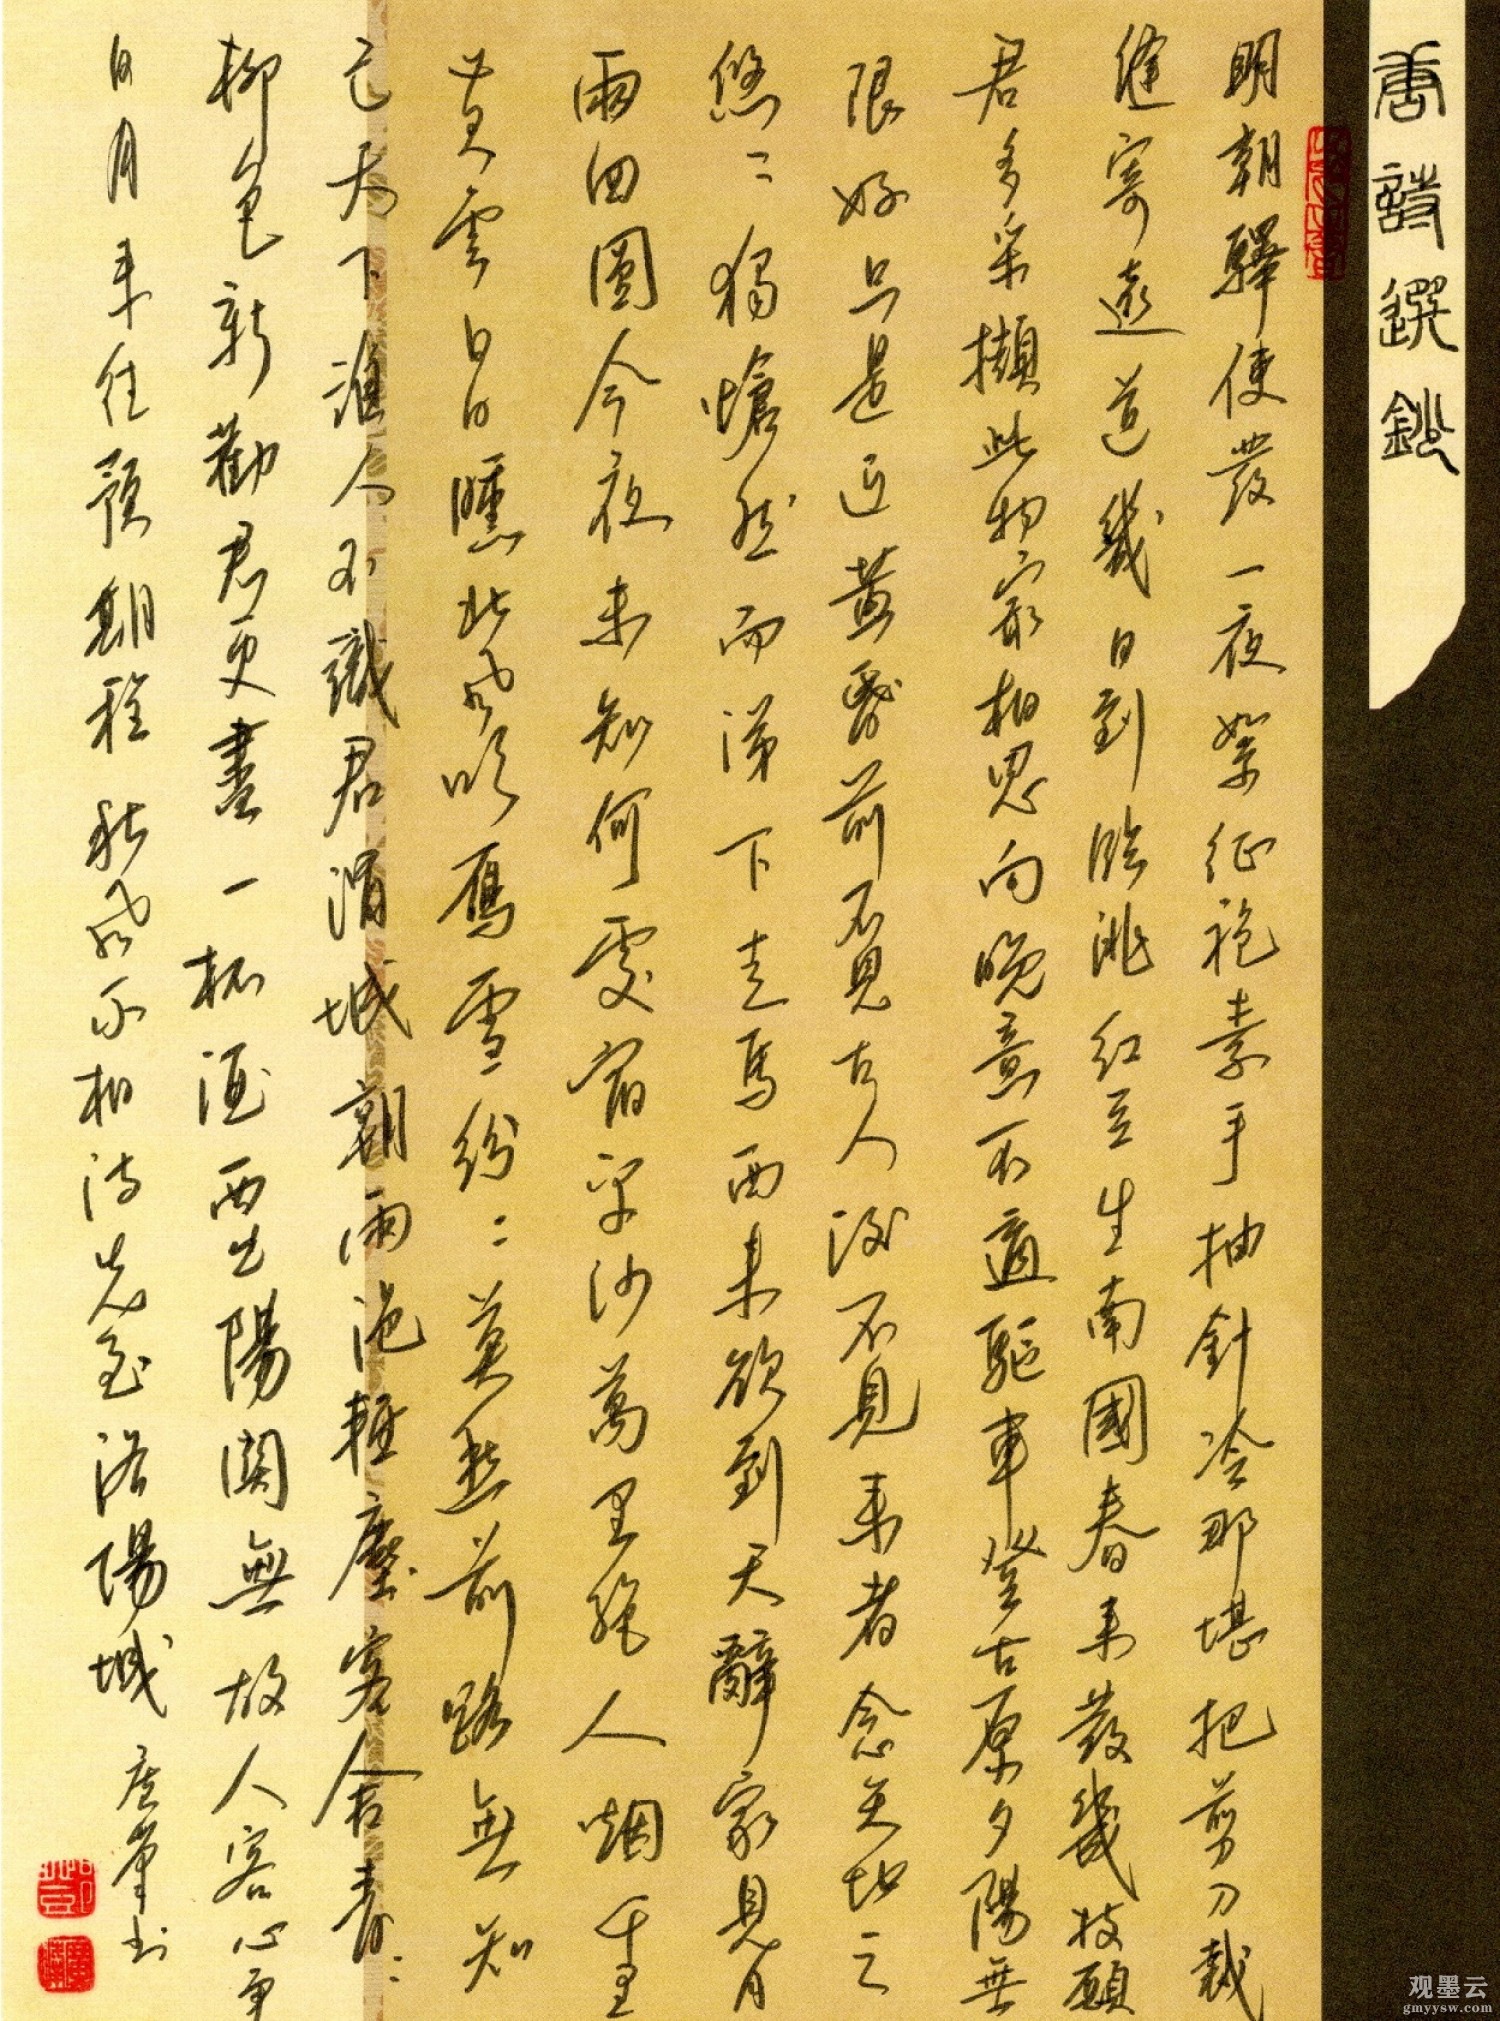 唐詩選鈔
明朝驛使發一夜絮征袍素手抽針冷那堪把剪刀裁
縫寄遠道幾日到臨洮紅豆生南國春來發幾枝願
君多采擷此物最相思向晚意不適驅車登古原夕陽無
限好只是近黃昏前不見古人後不見來者念天地之
悠〻獨愴然而涕下走馬西來欲到天辭家見月
兩回圓今夜未知何處宿平沙萬里絕人烟千里
黃雲白日曛北風吹雁雪紛〻莫愁前路無知
己天下誰人不識君渭城朝雨浥輕塵客舍青〻
柳色新勸君更盡一杯酒西出陽關無故人客心爭
日月來往預期程秋風不相待先至洛陽城
書
观墨云
gmyysw.com